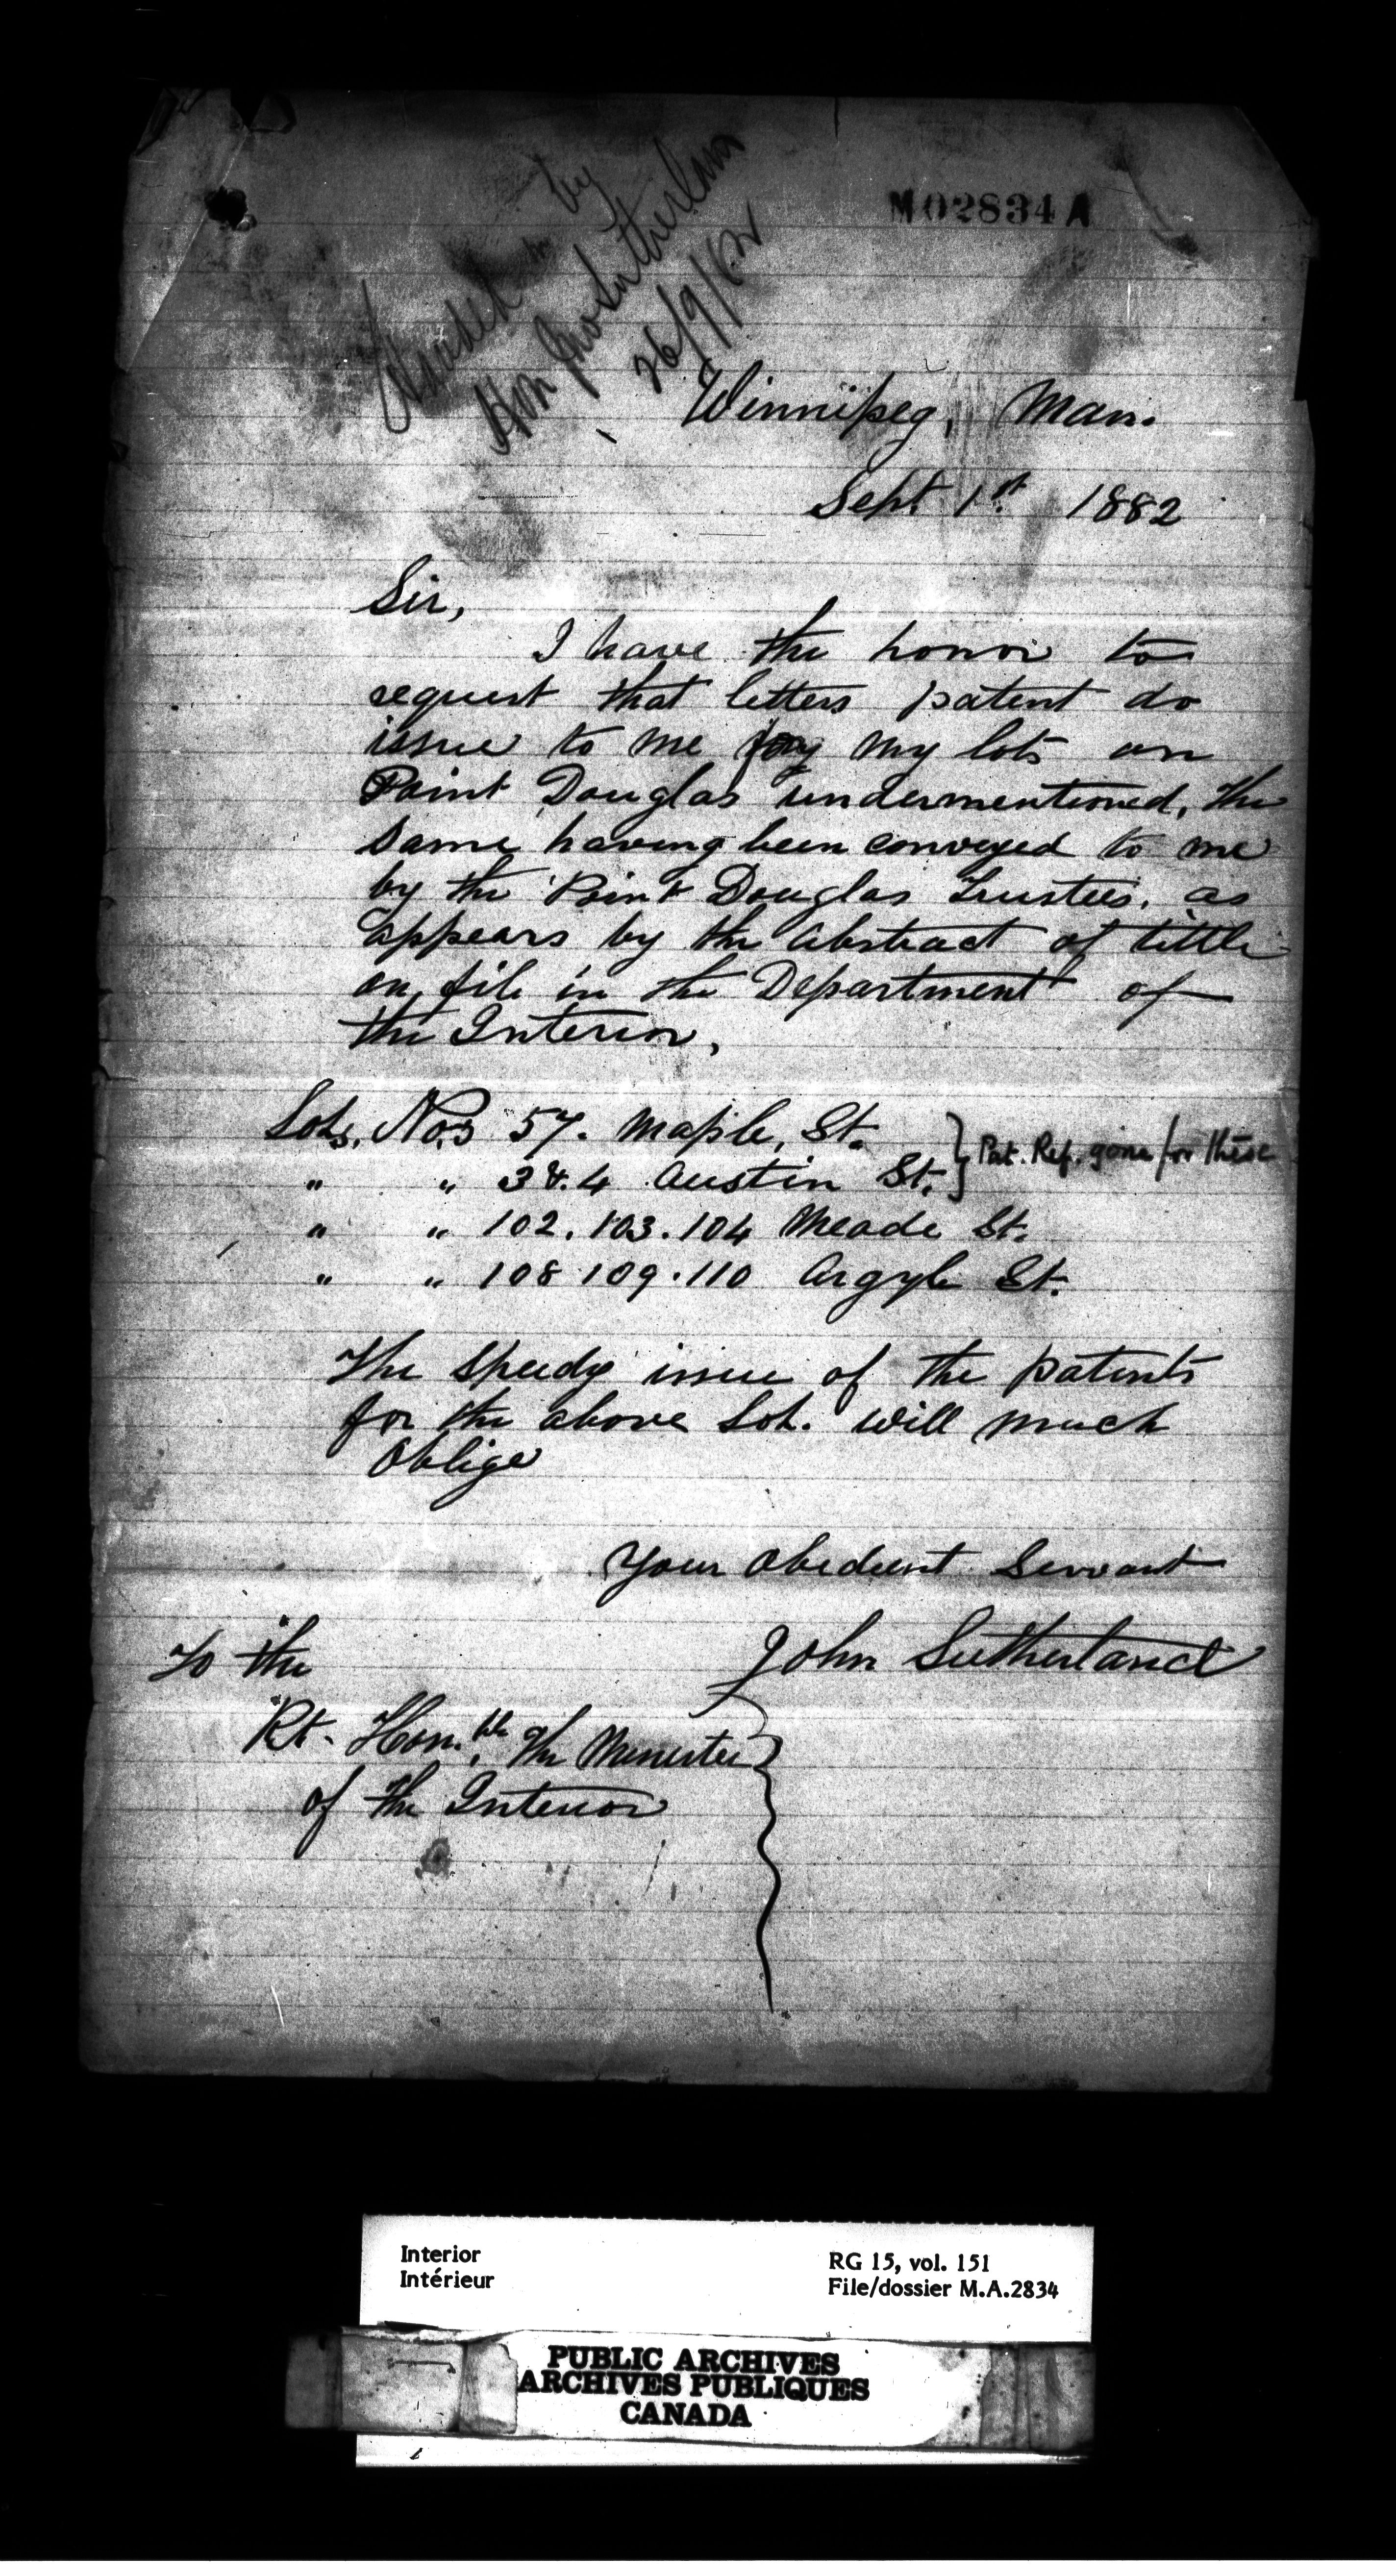 M02834A
Handed by
Hon Jno Sutherland
26/9/82
Winnipeg, Man.
Sept 1st. 1882
Sir,
I have the honor to
request that letters patent do
issue to me for my lots on
Point Douglas undermentioned, the
same having been conveyed to me
by the Point Douglas Trustees, as
appears by the abstract of tittle
on file in the Department of
the Interior,
Lots, Nos 57. Maple, St.
" " 3 & 4 Austin St. } Pat. Ref. gone for these
" " 102. 103. 104 Meade St.
" " 108 109. 110 Argyle St.
The speedy issue of the patents
for the above Lots. will much
Oblige
Your obedient Servant
John Sutherland
To the
Rt. Hon.ble The Minister
of the Interior
Interior
Intérieur
RG 15, vol. 151
File/dossier M.A.2834
PUBLIC ARCHIVES
ARCHIVES PUBLIQUES
CANADA